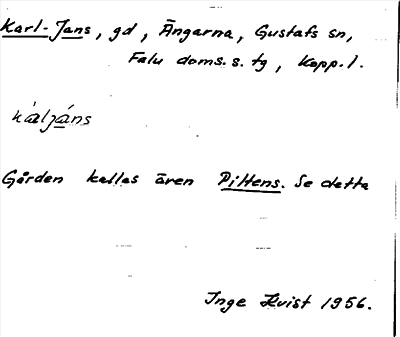 Karl-Jans, gd, Ängarna, Gustafs sn,
Falu doms. s. tg, Kopp. l.
kàljáns
Gården kallas även Pittens. Se detta
Inge Kvist 1956.